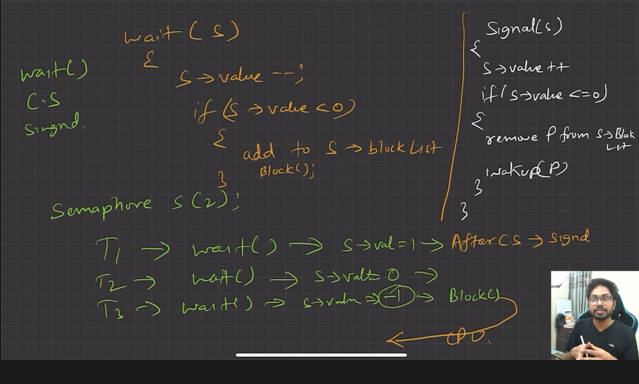 wait(s)
{
s→value --;
if(s→value<0)
{
add to s→blockList
Block();
}
wait()
C.S
Signal(s)
{
s→value++
if(s→value<=0)
{
remove P from s→Block
List
wakeup(P)
}
}
Semaphore s(2);
T1 → wait() → s→val=1 → After CS → signal
T2 → wait() → s→val=0 →
T3 → wait() → s→value → -1 → Block()
CPU.